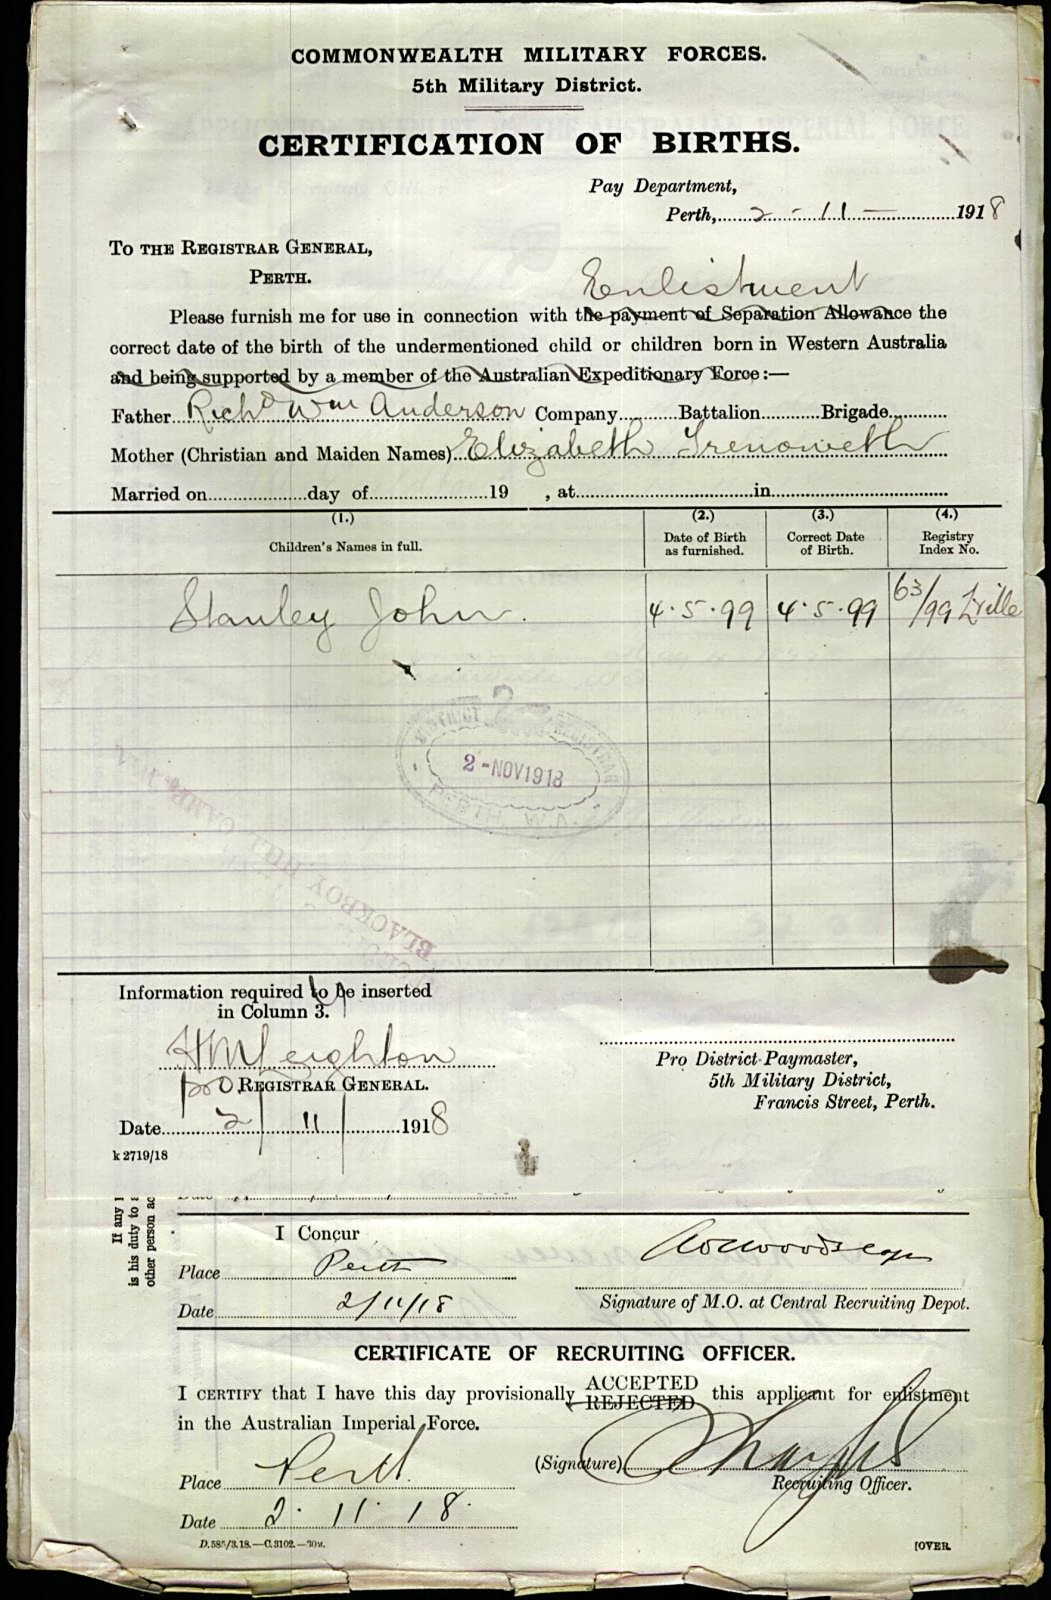 COMMONWEALTH MILITARY FORCES.
5th Military District.
CERTIFICATION OF BIRTHS.
Pay Department,
Perth, 2 - 11 - 1918
TO THE REGISTRAR GENERAL,
PERTH.
Enlistment
Please furnish me for use in connection with the payment of Separation Allowance the
correct date of the birth of the undermentioned child or children born in Western Australia
and being supported by a member of the Australian Expeditionary Force:—
Father Richd Wm Anderson Company Battalion Brigade
Mother (Christian and Maiden Names) Elizabeth Trenoweth
Married on day of 19 , at in
(1.) (2.) (3.) (4.)
Children's Names in full. Date of Birth as furnished. Correct Date of Birth. Registry Index No.
Stanley John. 4.5.99 4.5.99 63/99
DISTRICT REGISTRAR
2-NOV1918
PERTH. W.A.
BLACKBOY HILL CAMP
Information required to be inserted
in Column 3.
H M Leighton
pro. REGISTRAR GENERAL.
Date 2/11/1918
k 2719/18
Pro District Paymaster,
5th Military District,
Francis Street, Perth.
If any
is his duty to
other person
I Concur
Place Perth
Date 2/11/18
Signature of M.O. at Central Recruiting Depot.
CERTIFICATE OF RECRUITING OFFICER.
I CERTIFY that I have this day provisionally ACCEPTED REJECTED this applicant for enlistment
in the Australian Imperial Force.
(Signature)
Recruiting Officer.
Place Perth.
Date 2.11.18.
D.585/3.18.—C.3102.—30M.
[OVER.